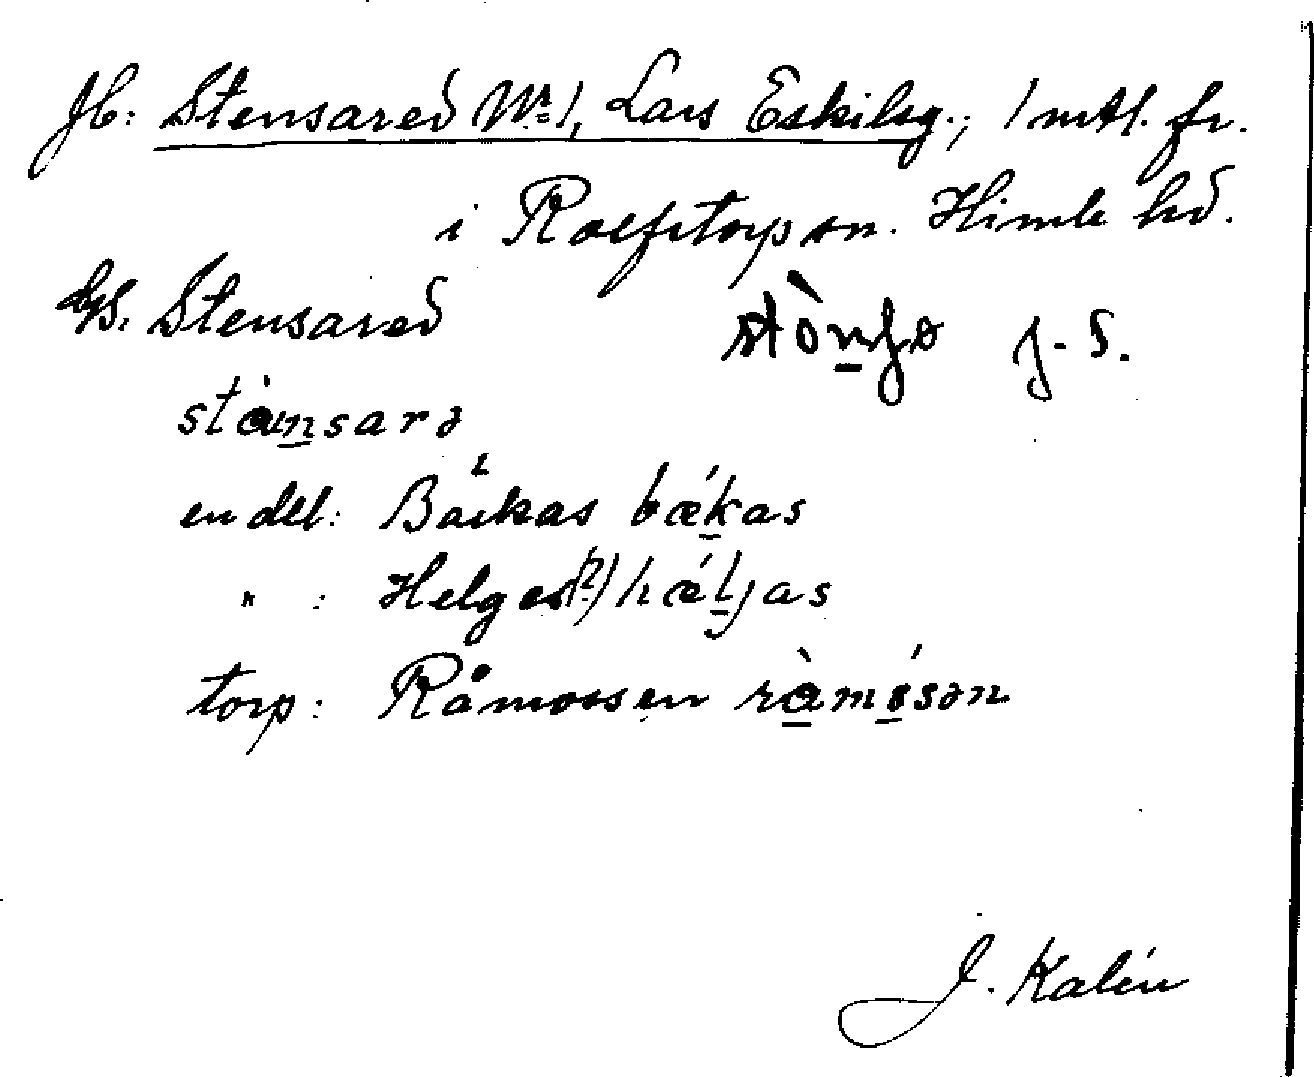 Jb: Stensared Nr 1, Lars Eskilsg.; 1 mtl. fr.
i Rolfstorp sn. Himle hd.
Gs. Stensared J. S.
stànsarə
en del: Bäckas bǽkas
" : Helges(?) hǽljas
torp: Råmossen ràmósən
J. Kalén